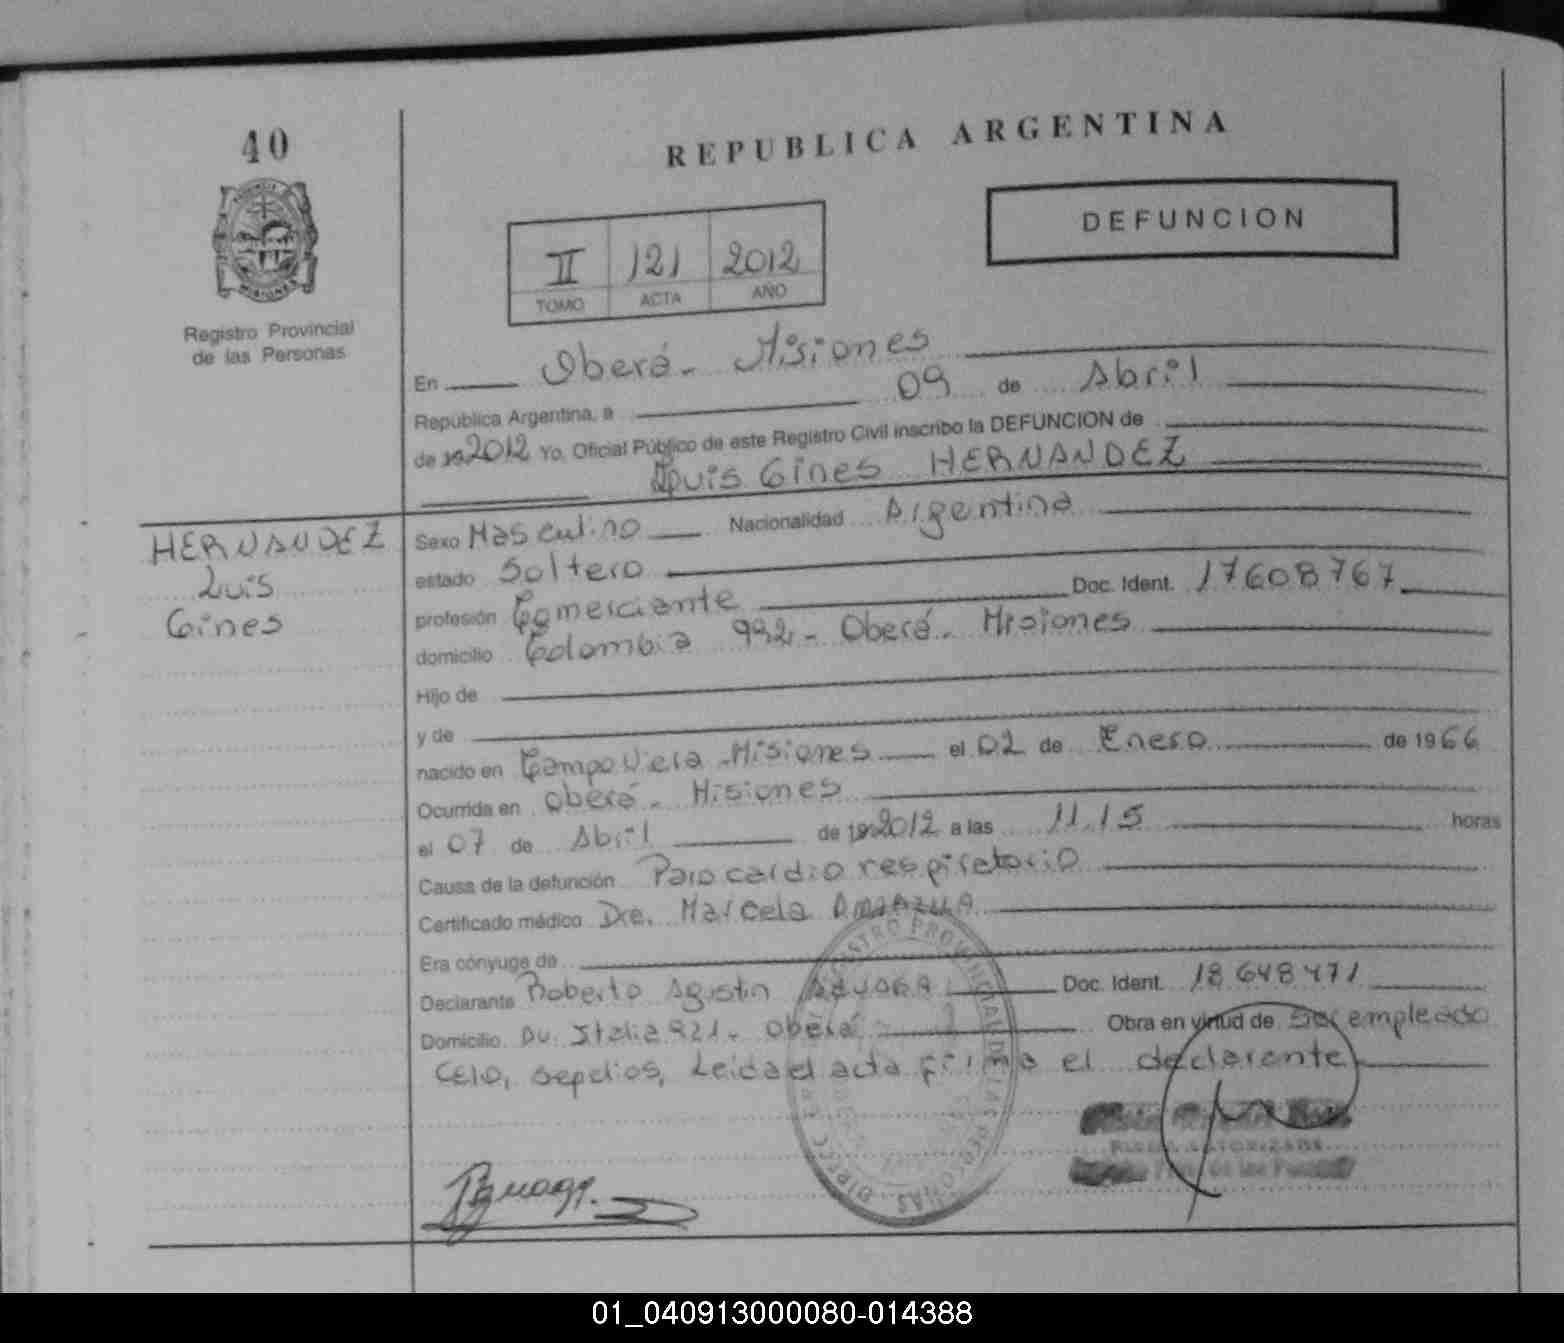 40
REPUBLICA ARGENTINA
DEFUNCION
II 121 2012
TOMO ACTA AÑO
Registro Provincial
de las Personas
En Oberá - Misiones
República Argentina, a 09 de Abril
de 19 2012 Yo, Oficial Público de este Registro Civil inscribo la DEFUNCION de
Luis Gines HERNANDEZ
HERNANDEZ
Luis
Gines
Sexo Masculino Nacionalidad Argentina
estado Soltero
profesión Comerciante Doc. Ident. 17608767
domicilio Colombia 992 - Oberá - Misiones
Hijo de
y de
nacido en Campo Viera - Misiones el 02 de Enero de 1966
Ocurrida en Oberá - Misiones
el 07 de Abril de 19 2012 a las 11.15 horas
Causa de la defunción Paro cardio respiratorio
Certificado médico Dra. Marcela
Era cónyuge de
Declarante Roberto Agustin Doc. Ident. 18.648.471
Domicilio Av. Italia 821 - Oberá - Obra en virtud de Ser empleado
Celo, sepelios, Leida el acta firma el declarante
REGISTRO PROVINCIAL DE LAS PERSONAS
01_040913000080-014388